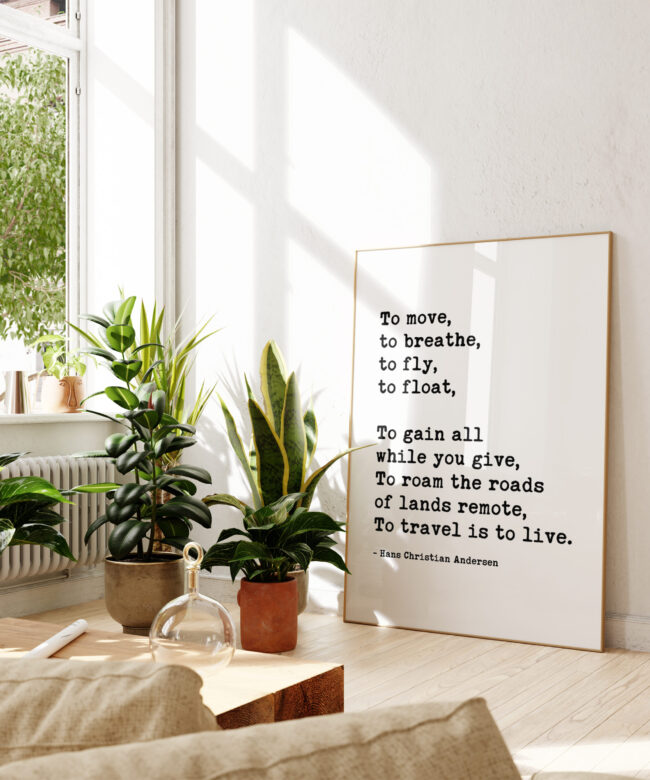 To move,
to breathe,
to fly,
to float,
To gain all
while you give,
To roam the roads
of lands remote,
To travel is to live.
- Hans Christian Andersen